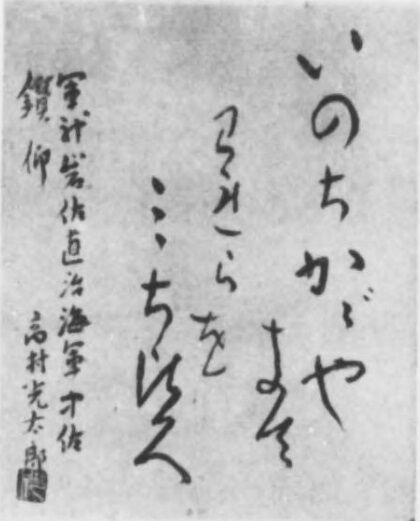 いのちかゞや
きて
われらを
みちひく
軍神岩佐直治海軍中佐
鑽仰
高村光太郎